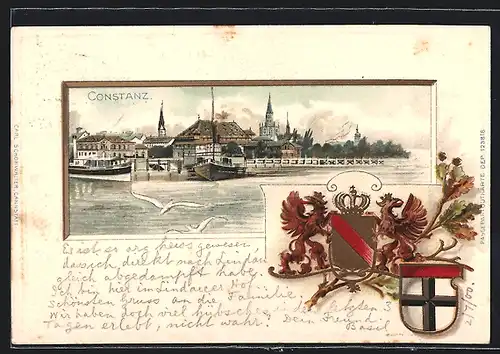 CONSTANZ.
CARL SCHÖNWALTER, CANNSTATT
PASSEPARTOUTKARTE. DEP. 123818
Es ist so arg heiss gewesen,
dass ich direkt nach Lindau
gleich abgedampft habe.
Ich bin hier im Lindauer Hof
Schönsten Gruss an die Familie
Wir haben doch viel hübsches in letzten 3
Tagen erlebt, nicht wahr? Dein Freund.
Basel
2/7/00.